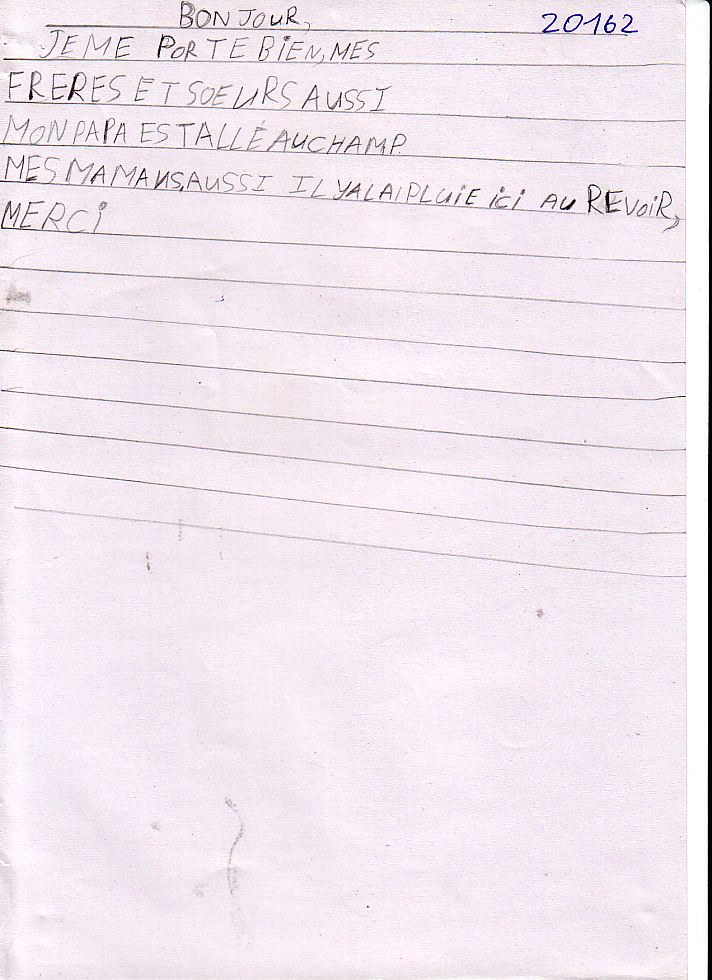 BONJOUR, 20162
JE ME PORTE BIEN, MES
FRERES ET SOEURS AUSSI
MON PAPA EST ALLÉ AU CHAMP.
MES MAMANS, AUSSI IL YA LAI PLUIE ici AU REVOIR,
MERCI